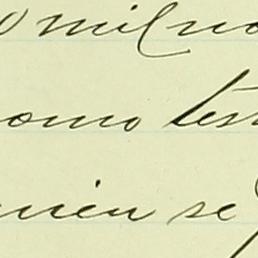 o mil no
omo test
nien se